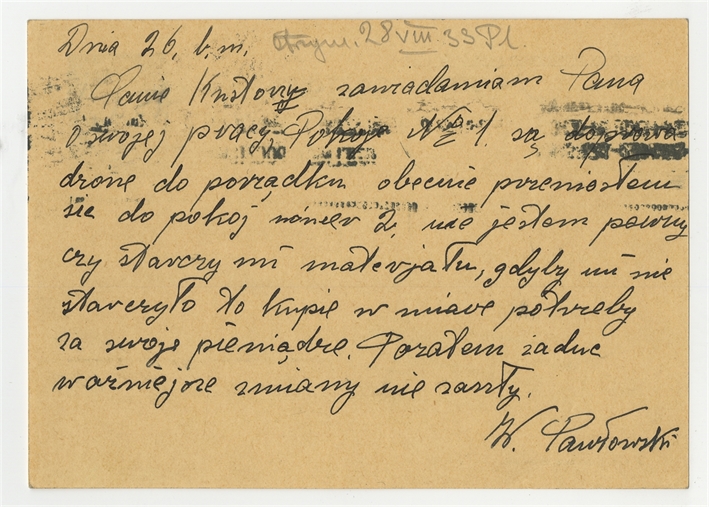 Dnia 26. b.m. otrzym. 28 VIII 33 Pl
Panie Kustoszu zawiadamiam Pana
o swojej pracy, Pokoje № 1. są doprowa
dzone do porządku obecnie przeniosłem
się do pokój númer 2, nie jestem pewny
czy starczy mi materjału, gdyby mi nie
starczyło to kupie w miare potrzeby
za swoje pieniądze. Pozatem żadne
ważniejsze zmiany nie zaszły.
W. Pawłowski